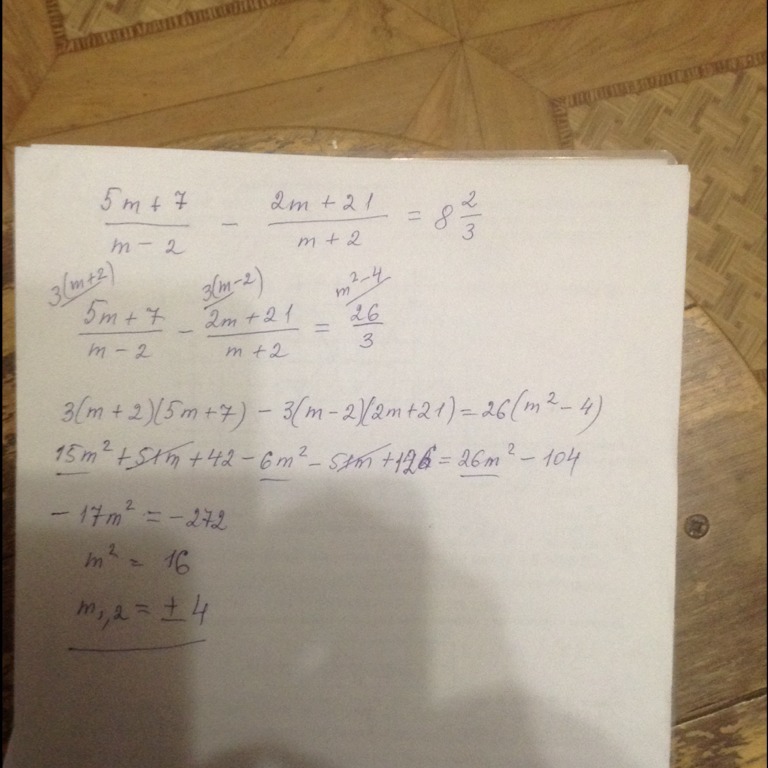 (5m + 7)/(m - 2) - (2m + 21)/(m + 2) = 8 2/3
3(m+2) 3(m-2) m² - 4
(5m + 7)/(m - 2) - (2m + 21)/(m + 2) = 26/3
3(m + 2)(5m + 7) - 3(m - 2)(2m + 21) = 26(m² - 4)
15m² + 51m + 42 - 6m² - 51m + 126 = 26m² - 104
- 17m² = - 272
m² = 16
m₁,₂ = ± 4